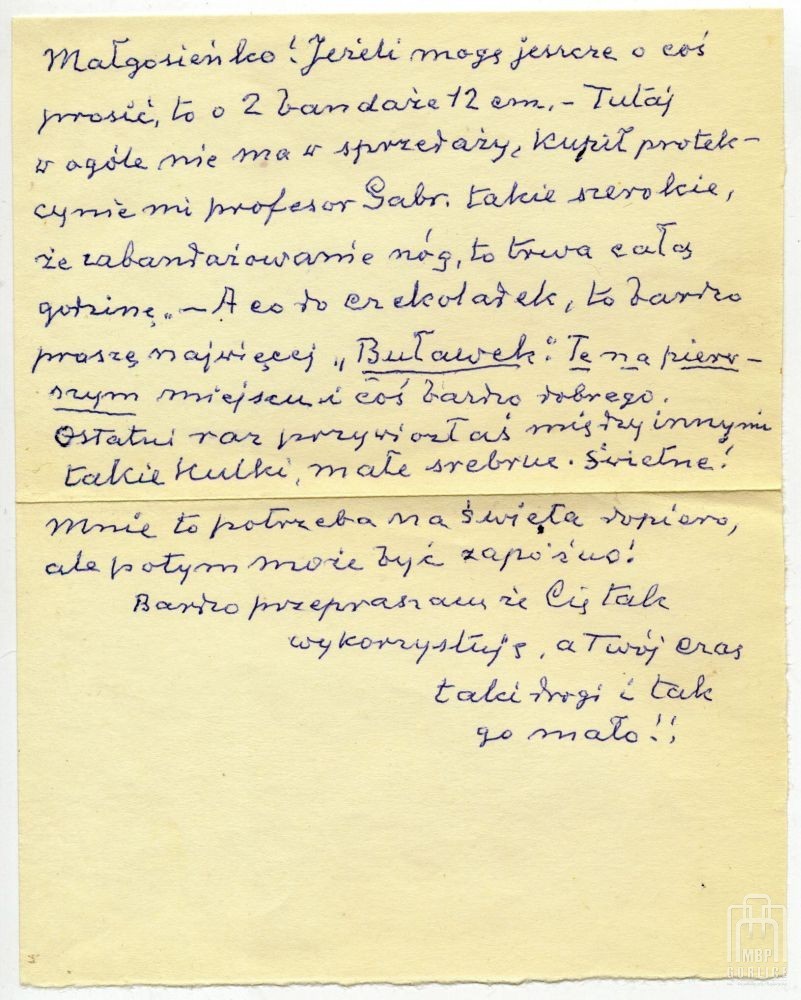 Małgosieńko! Jeżeli mogę jeszcze o coś
prosić, to o 2 bandaże 12 cm. – Tutaj
w ogóle nie ma w sprzedaży, kupił protek-
cyjnie mi profesor Gabr. takie szerokie,
że zabandażowanie nóg, to trwa całą
godzinę. – A co do czekoladek, to bardzo
proszę najwięcej „Buławek". Te na pierw-
szym miejscu i coś bardzo dobrego.
Ostatni raz przywiozłaś między innymi
takie kulki, małe srebrne. Świetne!
Mnie to potrzeba na święta dopiero,
ale potym może być zapóźno!
Bardzo przepraszam że Cię tak
wykorzystuję, a Twój czas
taki drogi i tak
go mało!!
MBP
GORLICE